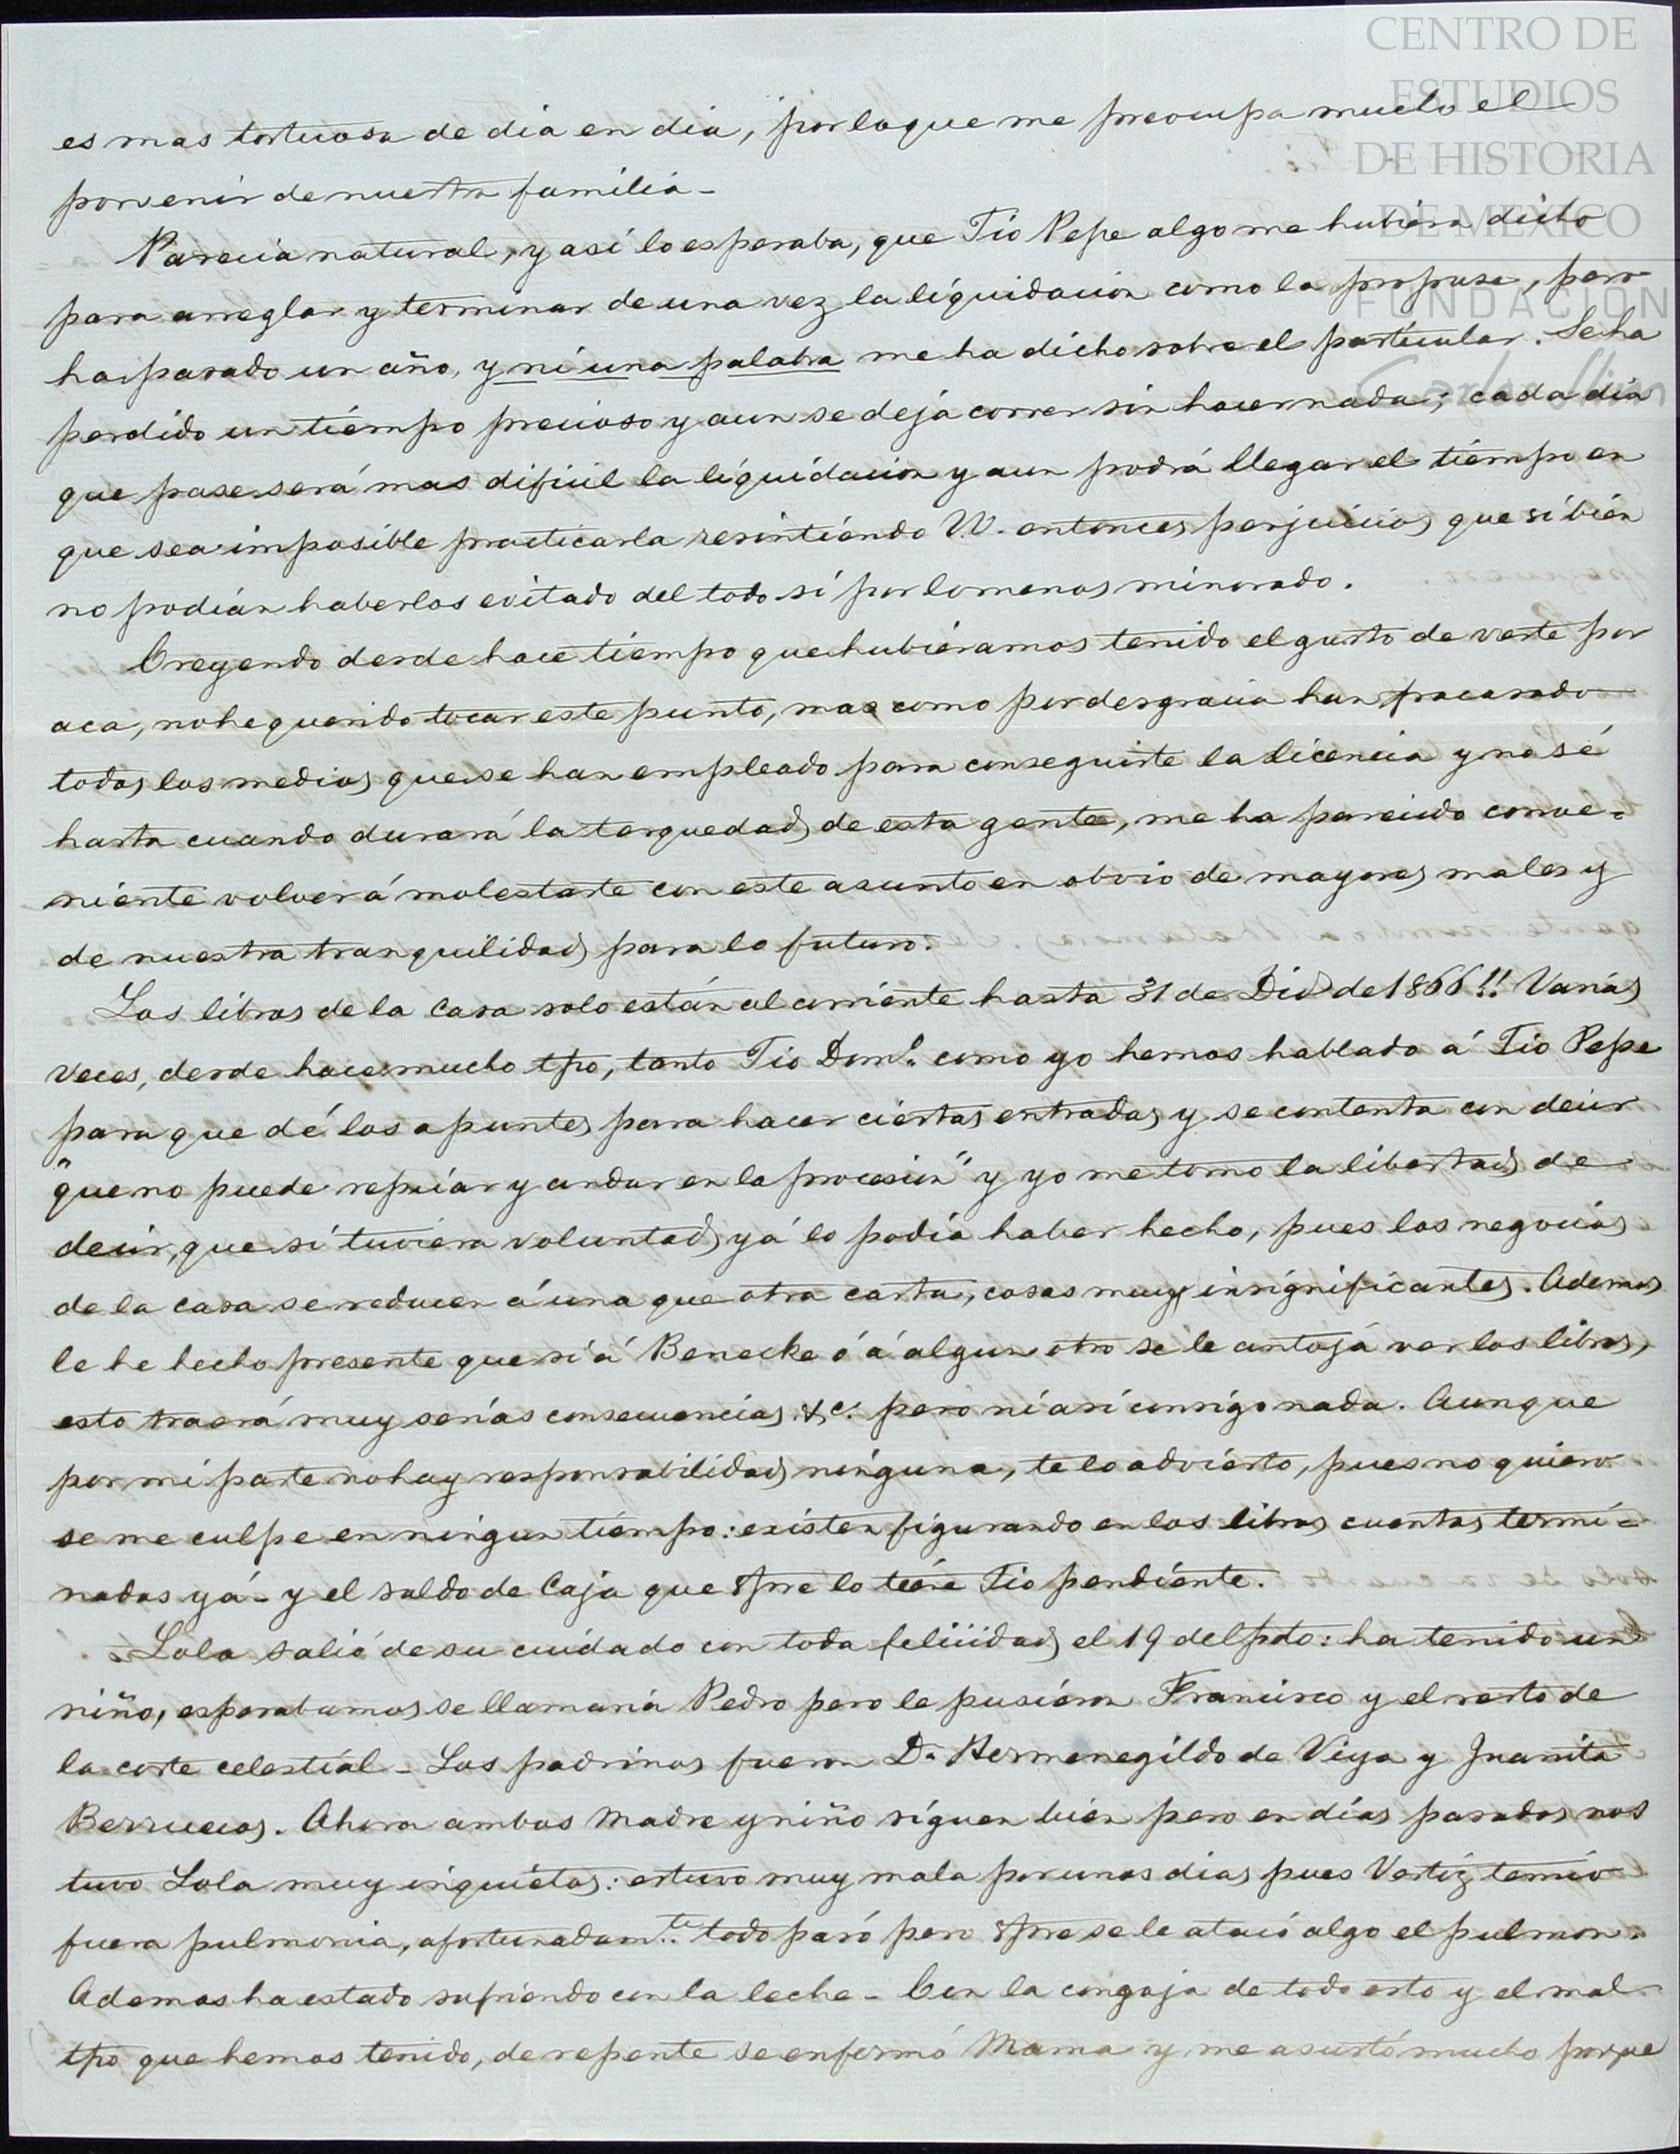 CENTRO DE
ESTUDIOS
DE HISTORIA
DE MEXICO
FUNDACIÓN
Carlos Slim
es mas tortuosa de dia en dia, por lo que me preocupa mucho el
porvenir de nuestra familia -
Parecia natural, y asi lo esperaba, que Tio Pepe algo me hubiera dicho
para arreglar y terminar de una vez la liquidacion como la propuse, pero
ha pasado un año, y ni una palabra me ha dicho sobre el particular. Se ha
perdido un tiempo precioso y aun se deja correr sin hacer nada; cada dia
que pase será mas dificil la liquidacion y aun podrá llegar el tiempo en
que sea imposible practicarla resintiendo VV. entonces perjuicios que si bien
no podian haberlos evitado del todo si por lo menos minorado.
Creyendo desde hace tiempo que hubieramos tenido el gusto de verte por
aca, no he querido tocar este punto, mas como por desgracia han fracasado
todos los medios que se han empleado para conseguirte la licencia y no sé
hasta cuando durará la terquedad de esta gente, me ha parecido conve=
niente volver á molestarte con este asunto en obvio de mayores males y
de nuestra tranquilidad para lo futuro.
Los libros de la Casa solo están al corriente hasta 31 de Dic de 1866!! Varias
veces, desde hace mucho tpo, tanto Tio Domo. como yo hemos hablado á Tio Pepe
para que dé los apuntes para hacer ciertas entradas y se contenta con decir
"que no puede repicar y andar en la procesion" y yo me tomo la libertad de
decir, que si tuviera voluntad yá lo podia haber hecho, pues los negocios
de la casa se reducen á una que otra carta, cosas muy insignificantes. Ademas
le he hecho presente que si á Benecke ó á algun otro se le antoja ver los libros,
esto traerá muy serias consecuencias &c. pero ni asi consigo nada. Aunque
por mi parte no hay responsabilidad ninguna, te lo advierto, pues no quiero
se me culpe en ningun tiempo: existen figurando en los libros cuentas termi=
nadas yá - y el saldo de Caja que spre lo tiene Tio pendiente.
Lola salió de su cuidado con toda felicidad el 19 del pdo: ha tenido un
niño, esperabamos se llamaria Pedro pero le pusieron Francisco y el resto de
la corte celestial - Los padrinos fueron Dn Hermenegildo de Viya y Juanita
Berruecos. Ahora ambos Madre y niño siguen bien pero en dias pasados nos
tuvo Lola muy inquietos: estuvo muy mala por unos dias pues Vertiz temió
fuera pulmonia, afortunadamte. todo pasó pero spre se le atacó algo el pulmon.
Ademas ha estado sufriendo con la leche - Con la congoja de todo esto y el mal
tpo que hemos tenido, de repente se enfermó Mama y me asustó mucho porque